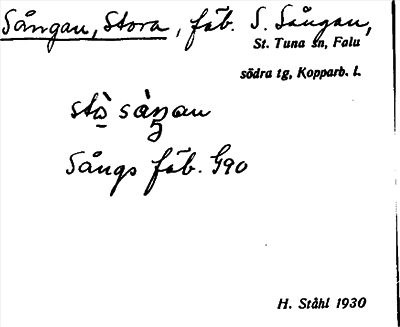 Sångan, Stora, fäb. S. Sångan,
St. Tuna sn, Falu
södra tg, Kopparb. l.
stò sàŋan
Sångs fäb. G90
H. Ståhl 1930